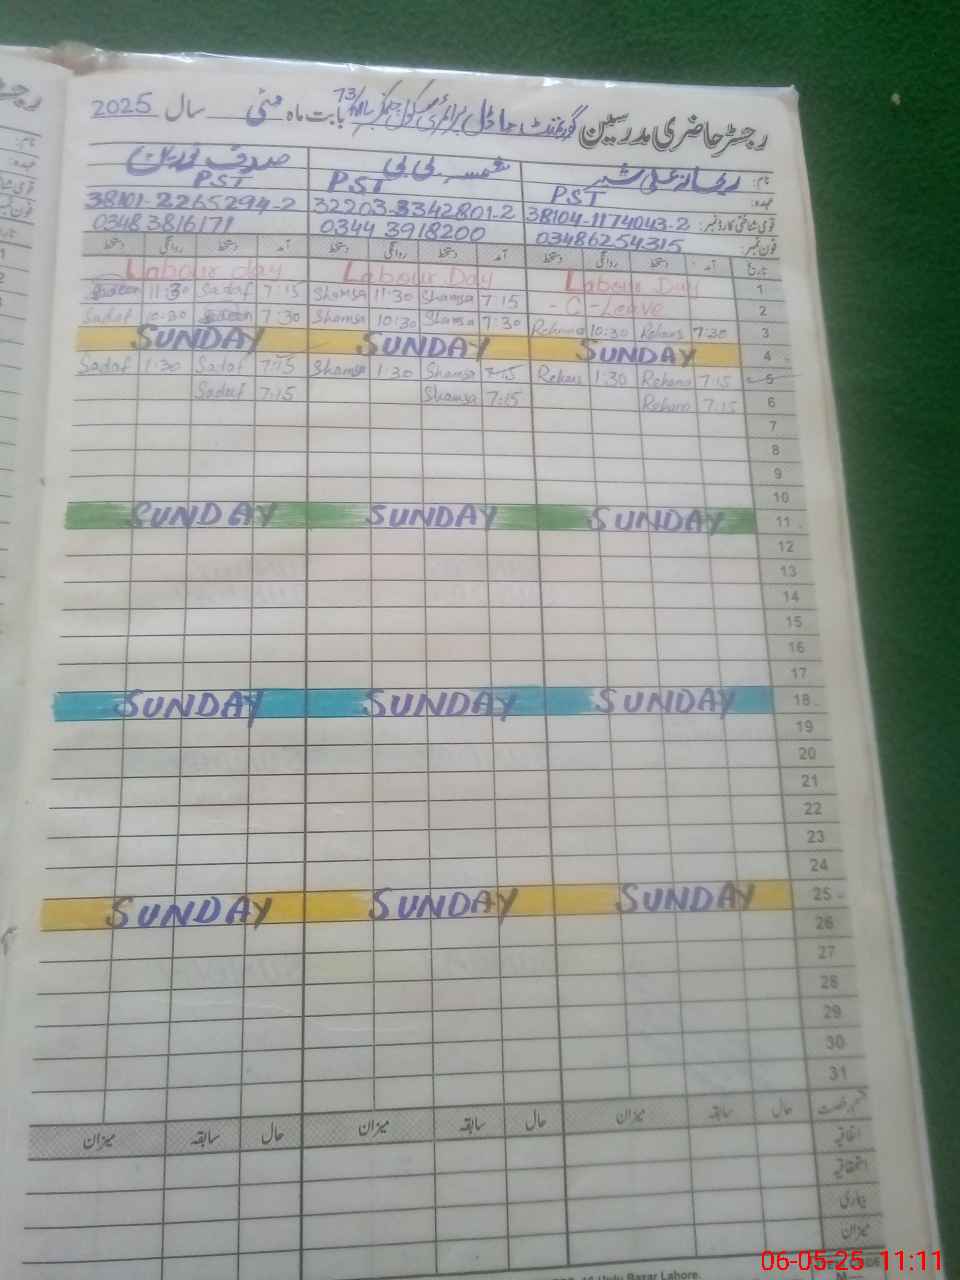 رجسٹر حاضری مدرسین گورنمنٹ ماڈل پرائمری سکول 73 بابت ماہ مئی سال 2025
نام: شمسہ بی بی
عہدہ: PST PST PST
قومی شناختی کارڈ نمبر: 38104-1174043-2 32203-3342801-2 38101-2265294-2
فون نمبر: 03486254315 0344 3918200 0348 3816171
تاریخ آمد دستخط روانگی دستخط آمد دستخط روانگی دستخط آمد دستخط روانگی دستخط
Labour day Labour Day Labour Day 1
11:30 Sadaf 7:15 Shamsa 11:30 Shamsa 7:15 - C - Leave 2
Sadaf 10:30 7:30 Shamsa 10:30 Shamsa 7:30 Rehana 10:30 Rehana 7:30 3
SUNDAY SUNDAY SUNDAY 4
Sadaf 1:30 Sadaf 7:15 Shamsa 1:30 Shamsa 7:15 Rehana 1:30 Rehana 7:15 5
Sadaf 7:15 Shamsa 7:15 Rehana 7:15 6
7
8
9
10
SUNDAY SUNDAY SUNDAY 11
12
13
14
15
16
17
SUNDAY SUNDAY SUNDAY 18
19
20
21
22
23
24
SUNDAY SUNDAY SUNDAY 25
26
27
28
29
30
31
قسم رخصت حال سابقہ میزان حال سابقہ میزان حال سابقہ میزان
اتفاقیہ
استحقاقیہ
بیماری
میزان
Urdu Bazar Lahore.
06-05-25 11:11